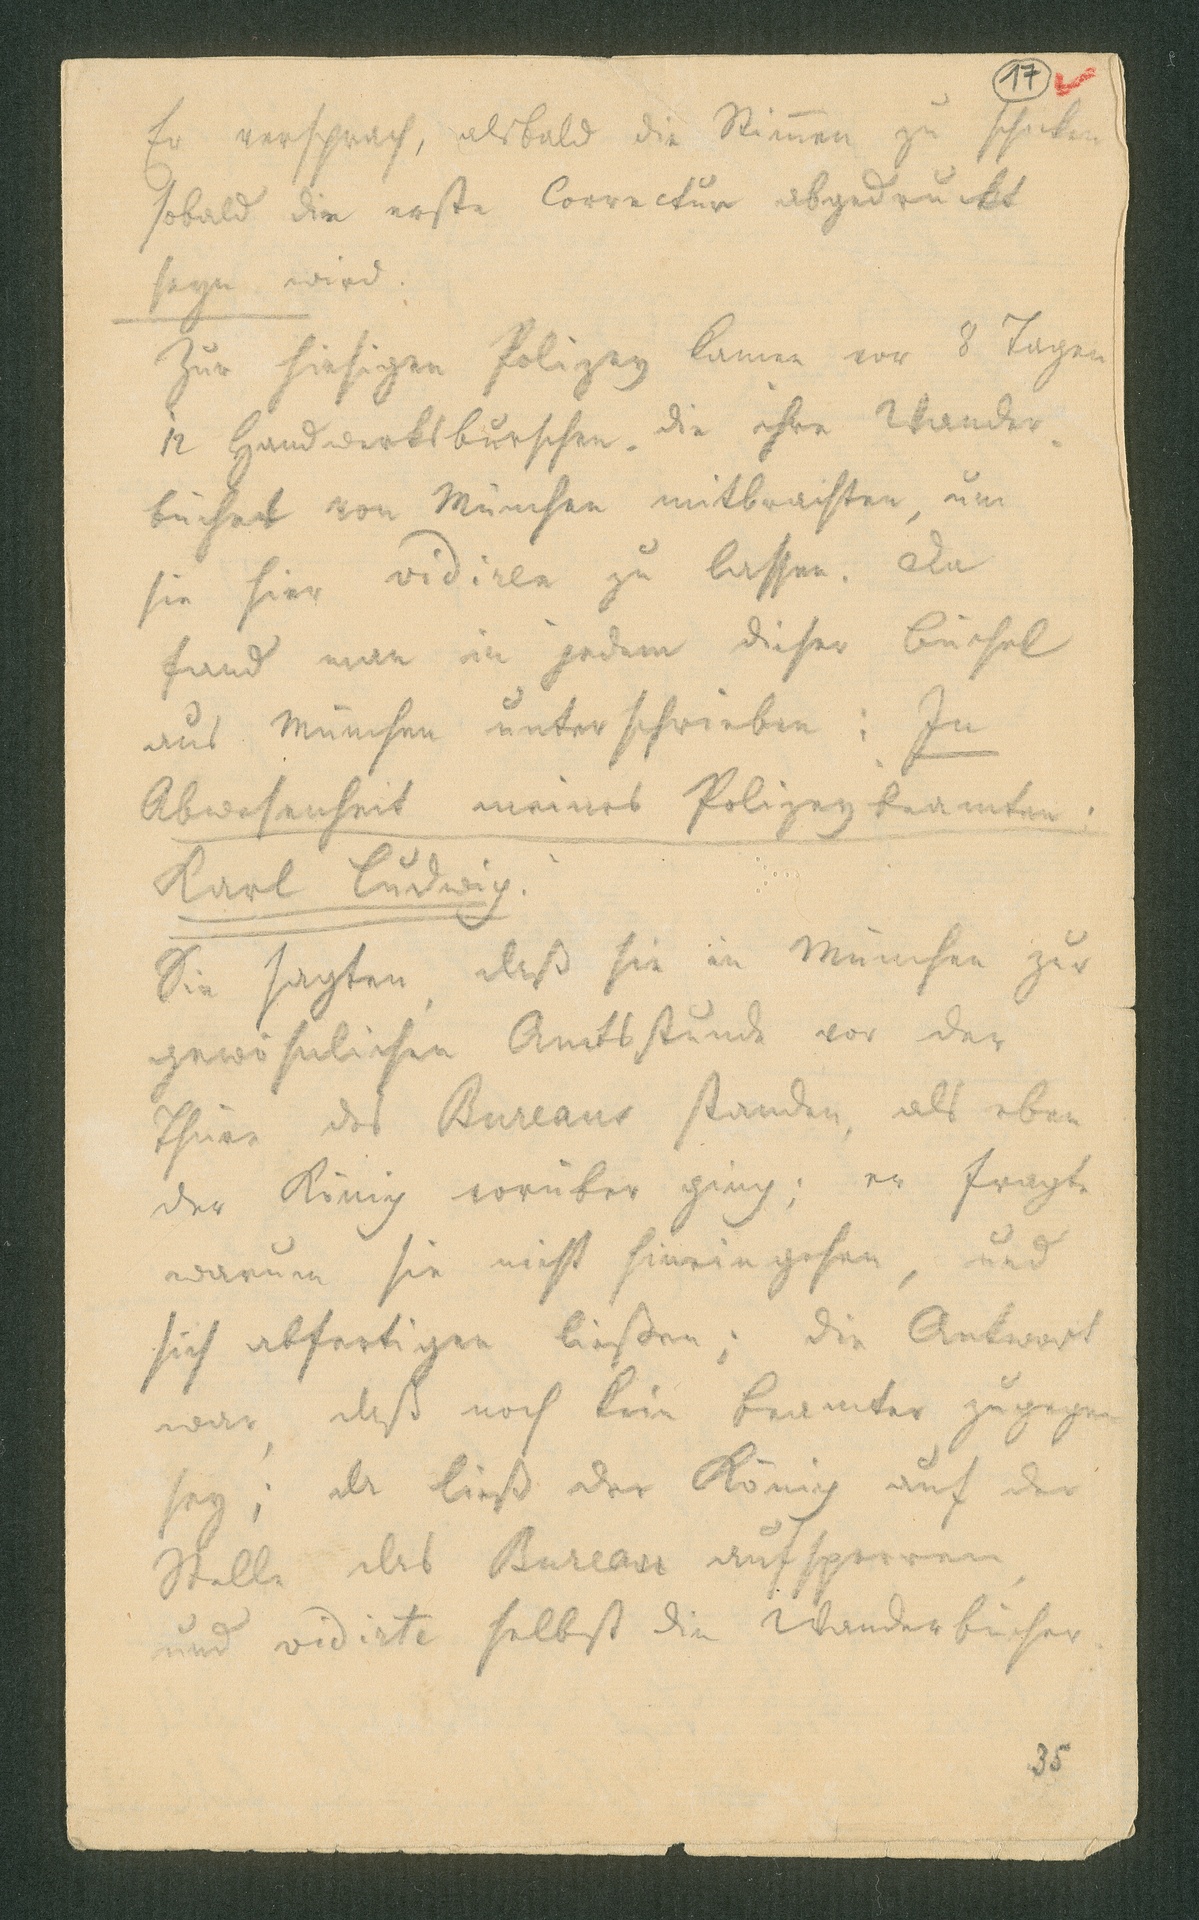 17
Er versprach, alsbald die Stimmen zu schicken
sobald die erste Correctur abgedruckt
seyn wird.
Zur hiesigen Polizey kamen vor 8 Tagen
12 Handwerksburschen. die ihre Wander-
büchel von München mitbrachten, um
sie hier vidiren zu lassen. Da
fand man in jedem dieser Büchel
aus München unterschrieben: In
Abwesenheit meines Polizeybeamten:
Karl Ludwig.
Sie sagten, daß sie in München zur
gewöhnlichen Amtsstunde vor der
Thüre des Bureaus standen, als eben
der König vorüber ging; er fragte
warum sie nicht hineingehen, und
sich abfertigen ließen; die Antwort
war, daß noch kein Beamter zugegen
sey; da ließ der König auf der
Stelle das Bureau aufsperren,
und vidirte selbst die Wanderbücher.
35